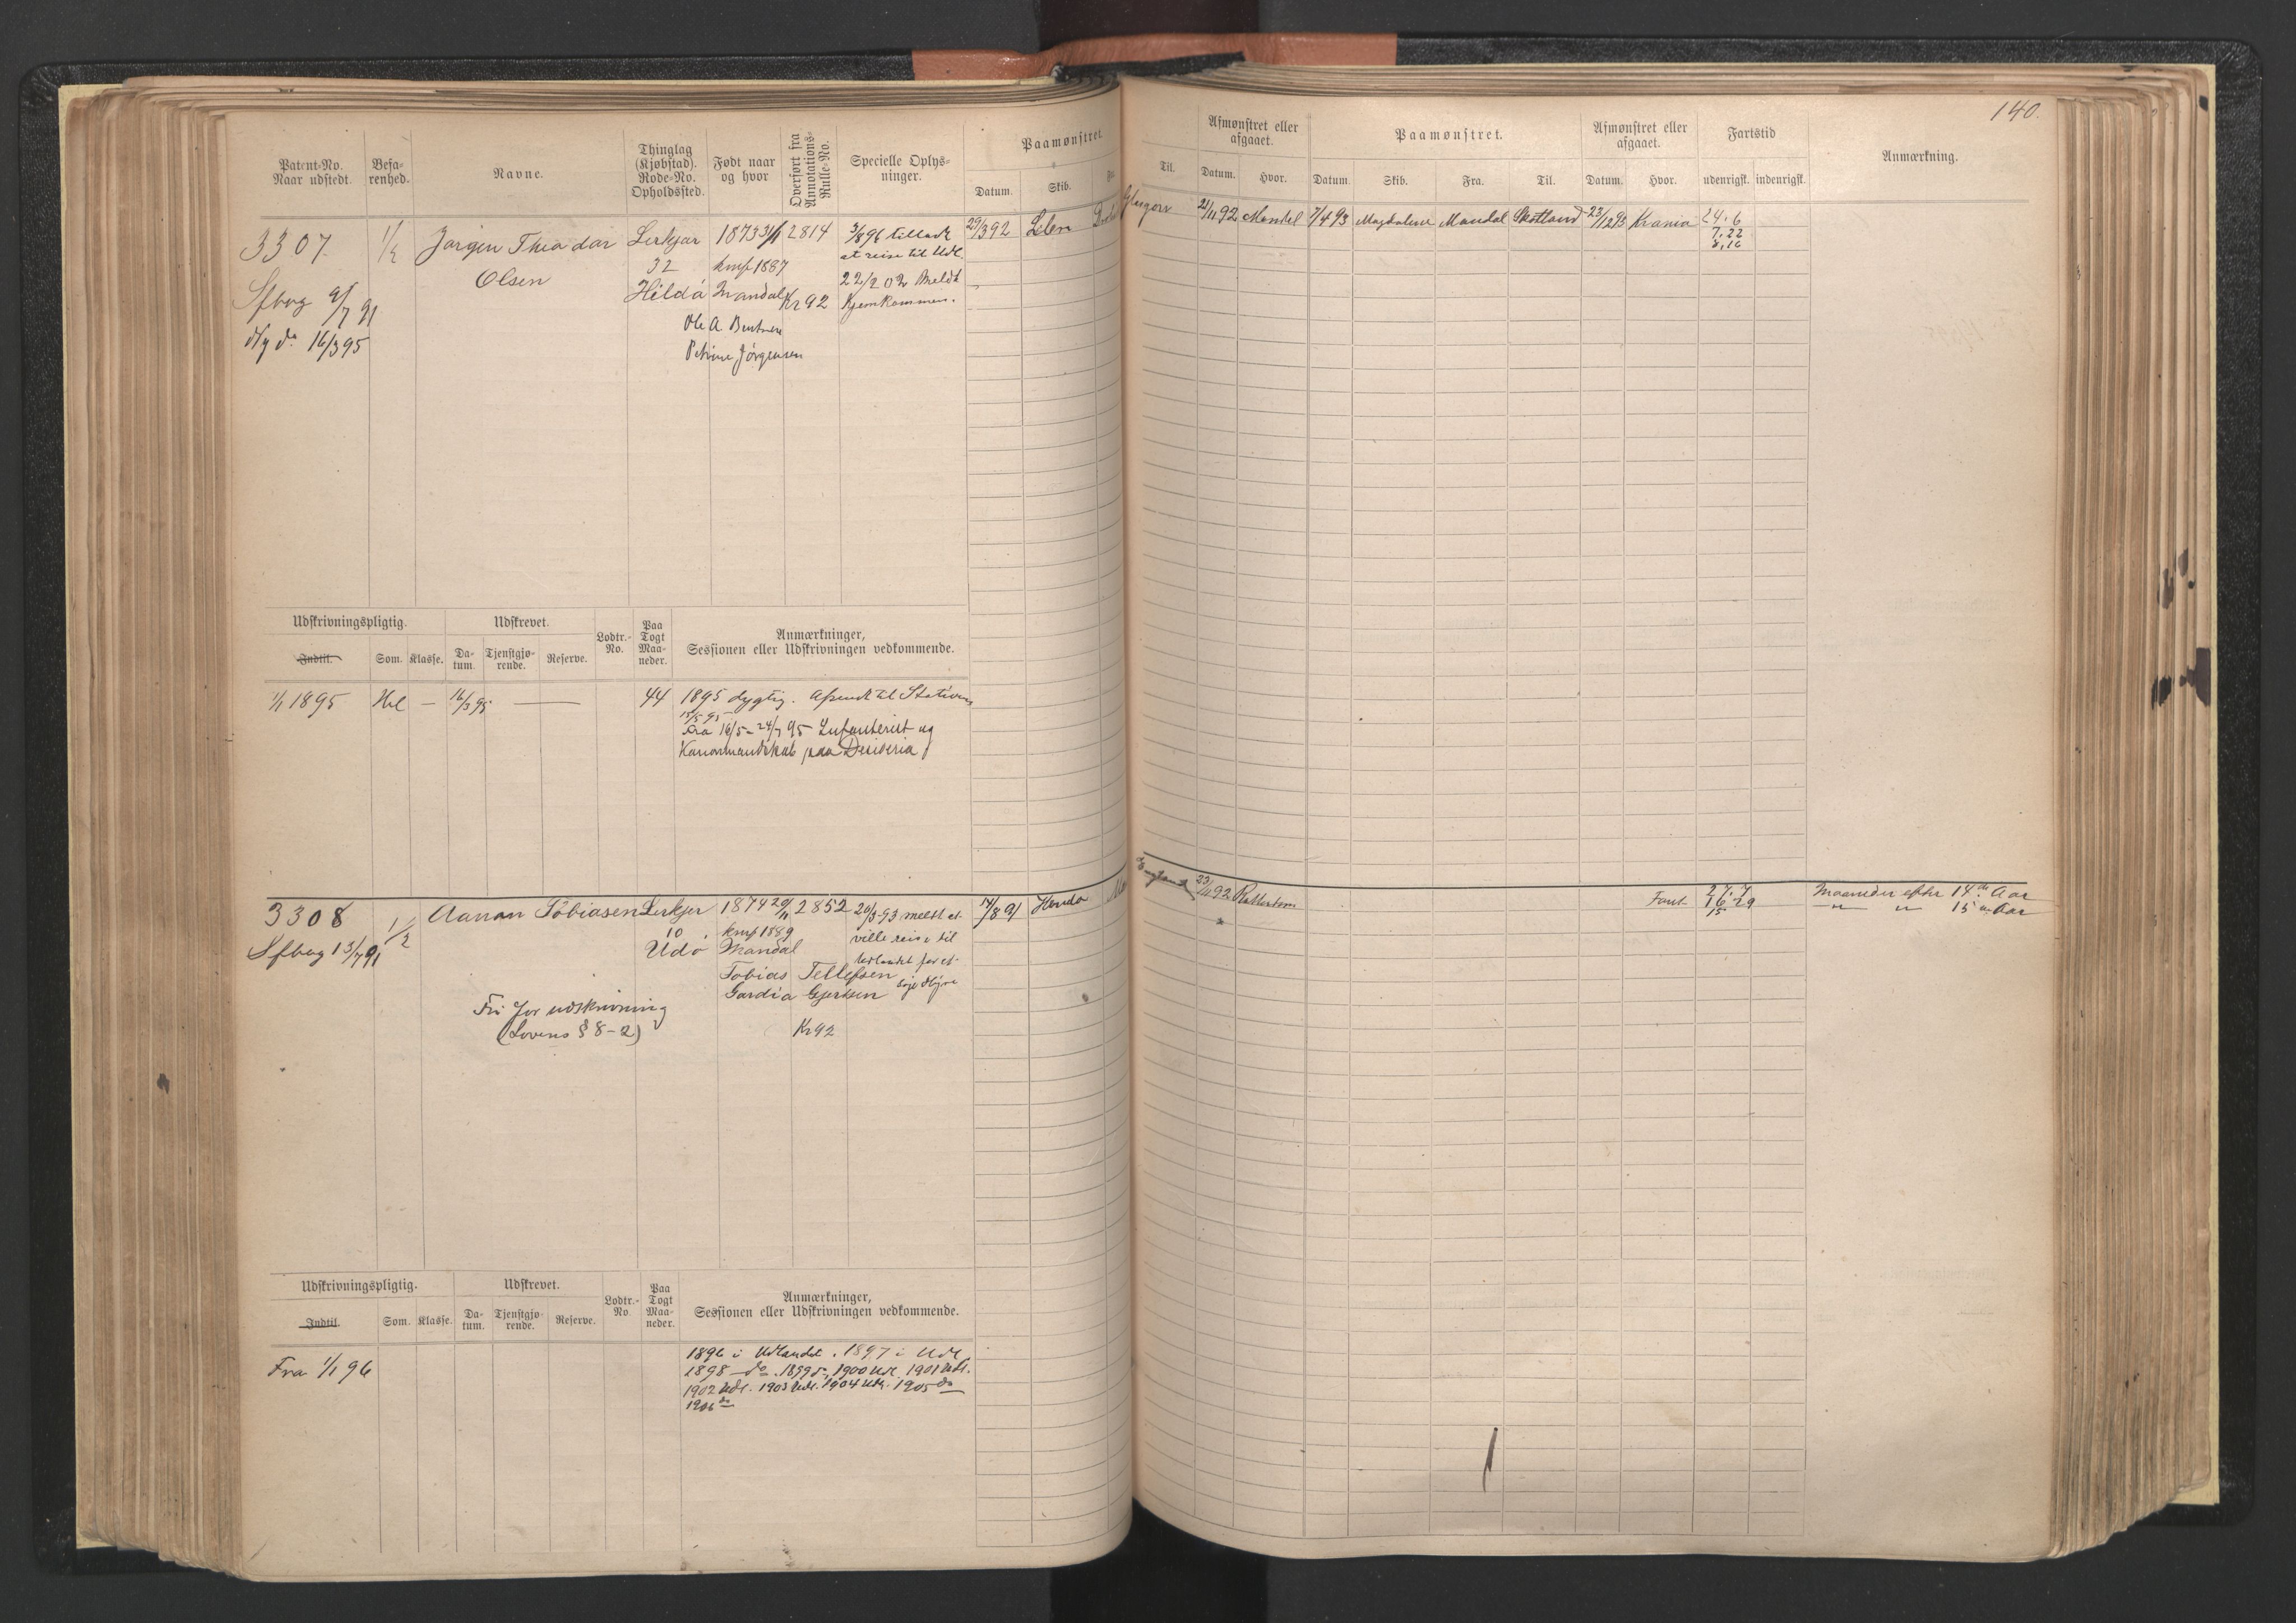 140.
Patent-No. Naar udstedt.
Befarenhed.
Navne.
Thinglag (Kjøbstad). Rode-No. Opholdssted.
Født naar og hvor
Overført fra Annotations-Rulle-No.
Specielle Oplysninger.
Paamønstret.
Datum.
Skib.
Fra.
Til.
Afmønstret eller afgaaet.
Datum.
Hvor.
Paamønstret.
Datum.
Skib.
Fra.
Til.
Afmønstret eller afgaaet.
Datum.
Hvor.
Fartstid
udenrigsk.
indenrigsk.
Anmærkning.
3307.
1/2
Jørgen Theodor
Olsen
Lerkjær
32
1873 3/1
kmf 1887
Mandal
2814
Kr 92
Ole A.
Petrine Jörgensen
3/8 96 tilladt
at reise til Udl.
22/2 02 Meldt
hjemkommen.
Sfbog 9/7 91
Ny do 16/3 95
29/3 92
Glasgow
21/11 92
Mandal
7/4 93
Magdalene
Mandal
Skotland
23/12 93
Krania
24. 6
7. 22
8. 16
Udskrivningspligtig.
Indtil.
Som.
Klasse.
Udskrevet.
Datum.
Tjenstgjørende.
Reserve.
Lodtr.-No.
Paa Togt Maaneder.
Anmærkninger,
Sessionen eller Udskrivningen vedkommende.
1/1 1895
Hel
—
16/3 95
44
1895 dygtig. Afsendt til Stationen
15/5 95
Fra 16/5 - 24/7 95 Infanterist og
Kanonmandskab paa Desideria
3308
1/2
Aanon Tobiasen
Lerkjer
10
Udö
1874 20/11
kmf 1889
Mandal
Tobias Tellefsen
Gjertsen
2852
Kr 92
20/3 93 meldt at
ville reise til
Udlandet for at
søge Hyre
Sfbog 13/7 91
Fri for udskrivning
(Lovens § 8-2)
14/8 91
England
23/11 92
Rotterdam
27. 7
16 29
15
Maaneder efter 14de Aar
" " 15 " Aar
Udskrivningspligtig.
Indtil.
Som.
Klasse.
Udskrevet.
Datum.
Tjenstgjørende.
Reserve.
Lodtr.-No
Paa Togt Maaneder.
Anmærkninger,
Sessionen eller Udskrivningen vedkommende.
Fra 1/1 96
1896 i Udlandet. 1897 i Udl
1898 do. 1899 do, 1900 Udl. 1901 Udl.
1902 Udl. 1903 Udl. 1904 Udl. 1905 do
1906 do